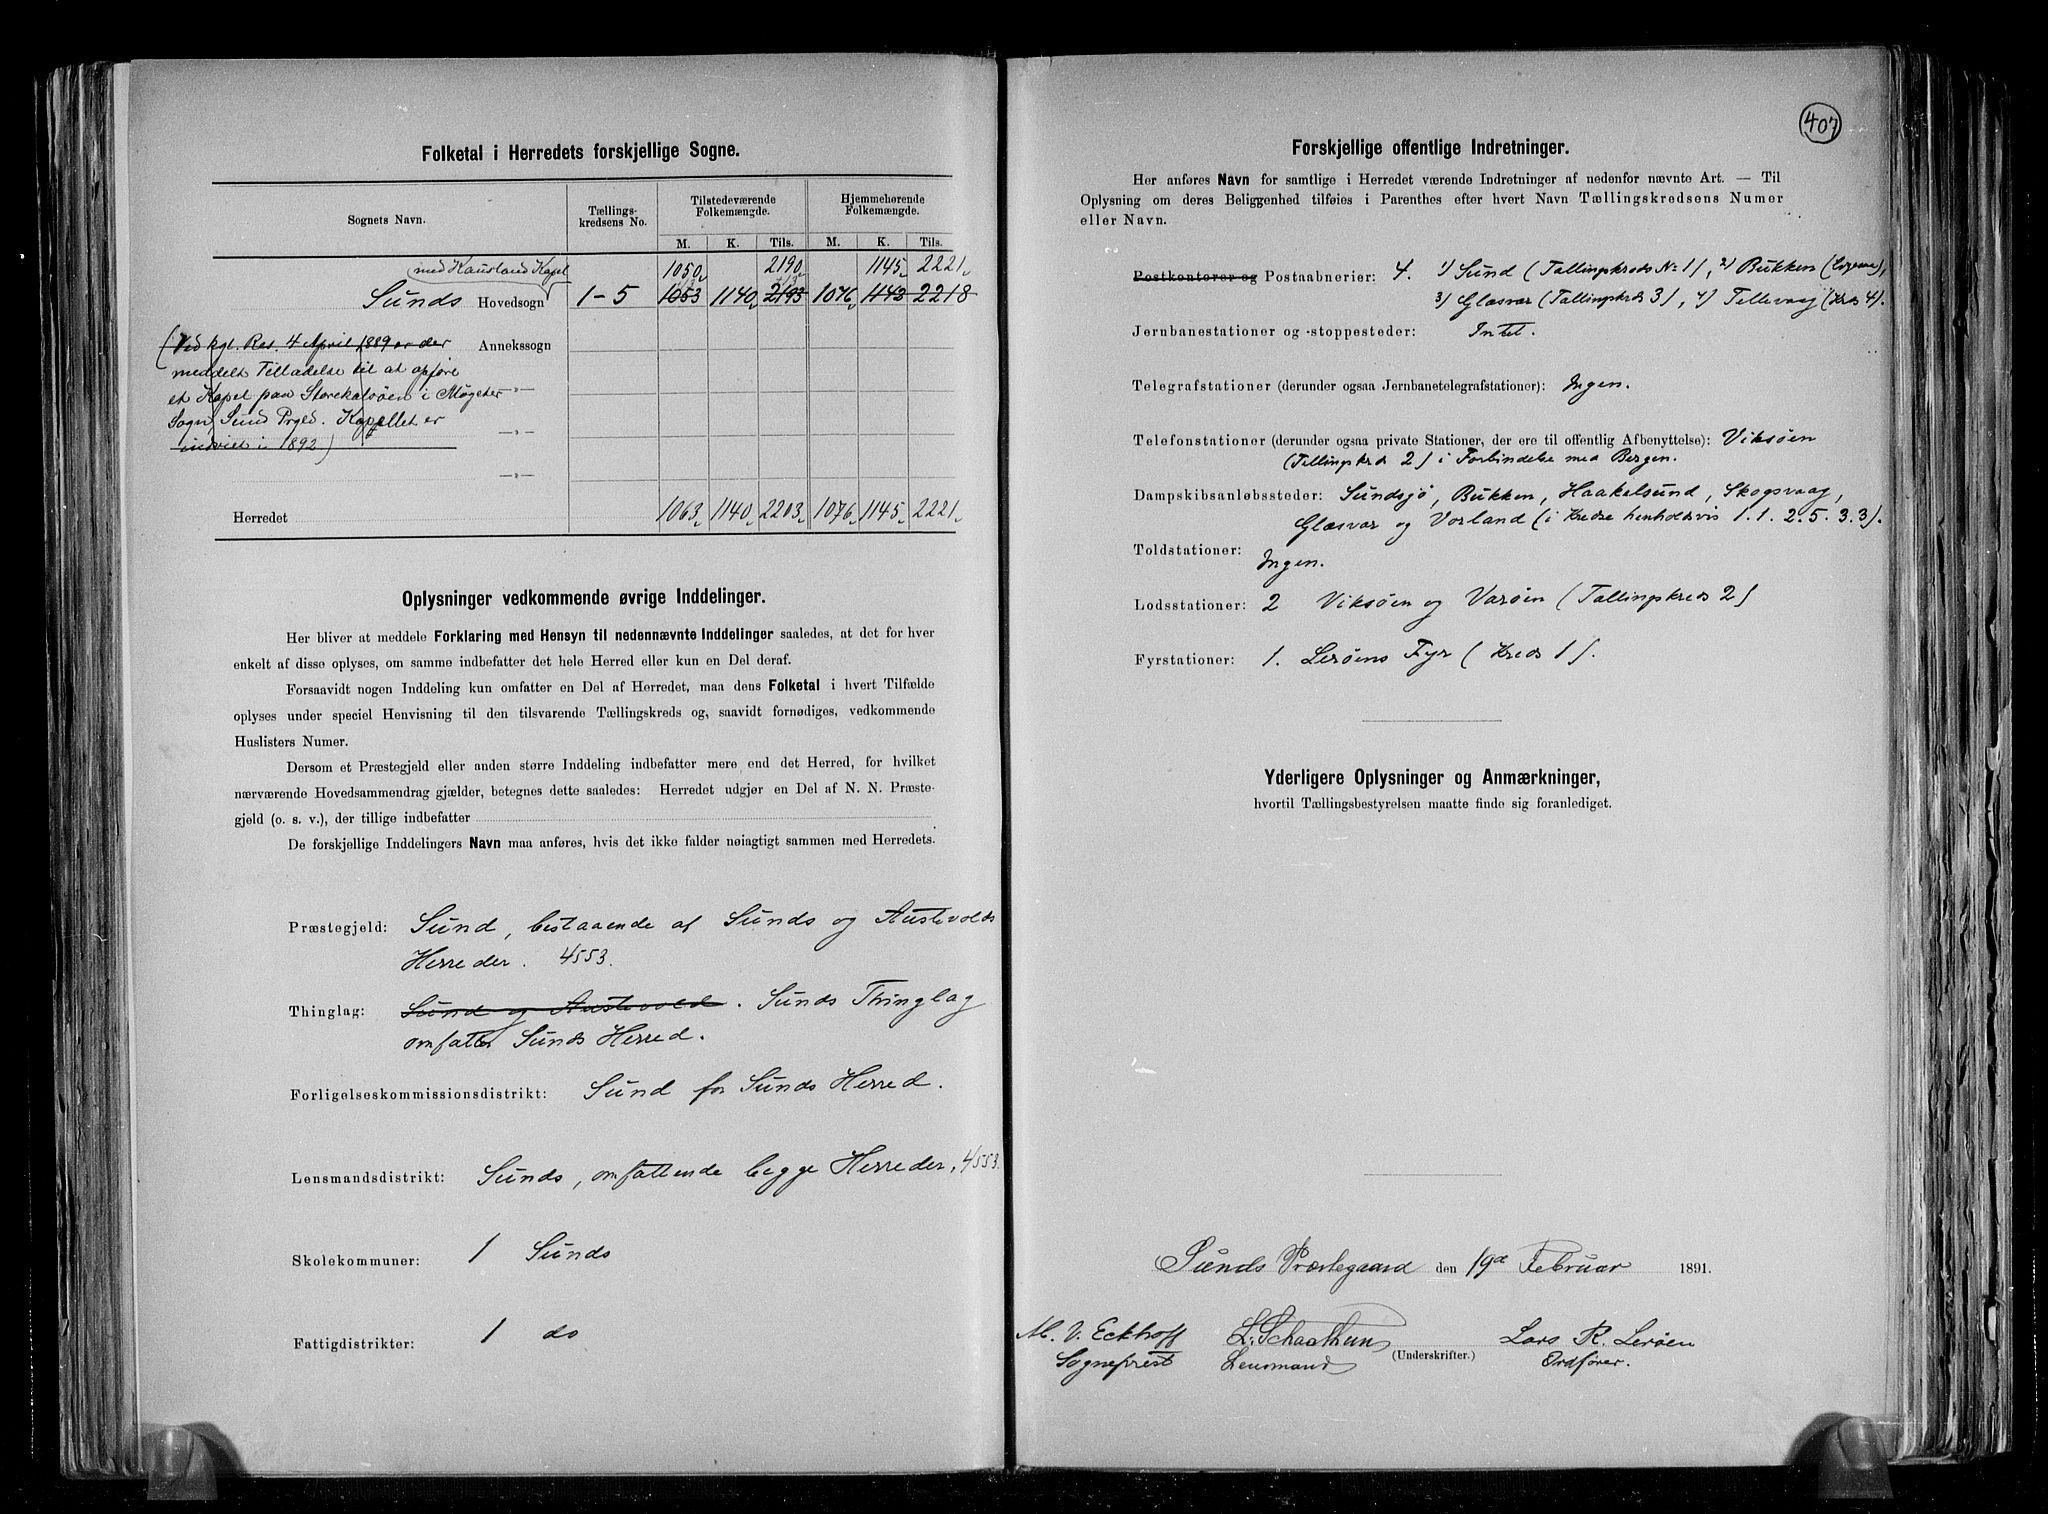 Folketal i Herredets forskjellige Sogne.
Sognets Navn. Tællingskredsens No. Tilstedeværende Folkemængde. Hjemmehørende Folkemængde.
M. K. Tils. M. K. Tils.
med Kausland Kapel 1050 2190 1145 2221
Sunds Hovedsogn 1-5 1053 1140 2193 1076 1142 2218
(Ved kgl. Res. 4 April 1889 er der Annekssogn
meddelt Tilladelse til at opføre
et Kapel paa Storekalsøen i Møgster -„-
Sogn Sund Prgld. Kapellet er
indviet i 1892) -„-
-„-
Herredet 1063 1140 2203 1076 1145 2221
Oplysninger vedkommende øvrige Inddelinger.
Her bliver at meddele Forklaring med Hensyn til nedennævnte Inddelinger saaledes, at det for hver
enkelt af disse oplyses, om samme indbefatter det hele Herred eller kun en Del deraf.
Forsaavidt nogen Inddeling kun omfatter en Del af Herredet, maa dens Folketal i hvert Tilfælde
oplyses under speciel Henvisning til den tilsvarende Tællingskreds og, saavidt fornødiges, vedkommende
Huslisters Numer.
Dersom et Præstegjeld eller anden større Inddeling indbefatter mere end det Herred, for hvilket
nærværende Hovedsammendrag gjælder, betegnes dette saaledes: Herredet udgjør en Del af N. N. Præste-
gjeld (o. s. v.), der tillige indbefatter
De forskjellige Inddelingers Navn maa anføres, hvis det ikke falder nøiagtigt sammen med Herredets.
Præstegjeld: Sund, bestaaende af Sunds og Austevolds
Herreder. 4553.
Thinglag: Sund og Austevold. Sunds Thinglag
omfatter Sunds Herred.
Forligelseskommissionsdistrikt: Sund for Sunds Herred.
Lensmandsdistrikt: Sunds, omfattende begge Herreder, 4553.
Skolekommuner: 1 Sunds
Fattigdistrikter: 1 do
407
Forskjellige offentlige Indretninger.
Her anføres Navn for samtlige i Herredet værende Indretninger af nedenfor nævnte Art. — Til
Oplysning om deres Beliggenhed tilføies i Parenthes efter hvert Navn Tællingskredsens Numer
eller Navn.
Postkontorer og Postaabnerier: 4. 1) Sund (Tællingskreds No 1), 2) Bukken (Ligesaa),
3) Glæsvær (Tællingkreds 3), 4) Tellevaag (Kreds 4).
Jernbanestationer og -stoppesteder: Intet.
Telegrafstationer (derunder ogsaa Jernbanetelegrafstationer): Ingen.
Telefonstationer (derunder ogsaa private Stationer, der ere til offentlig Afbenyttelse): Viksøen
(Tællingskrds 2) i Forbindelse med Bergen.
Dampskibsanløbssteder: Sundsjø, Bukken, Haakelsund, Skogsvaag,
Glæsvær og Vorland (i Kredse henholdsvis 1. 1. 2. 5. 3. 3).
Toldstationer: Ingen.
Lodsstationer: 2 Viksøen og Varøen (Tællingskreds 2)
Fyrstationer: 1. Lerøens Fyr (Kreds 1).
Yderligere Oplysninger og Anmærkninger,
hvortil Tællingsbestyrelsen maatte finde sig foranlediget.
Sunds Præstegaard den 19de Februar 1891.
M. V. Eckhoff L. Schaathun Lars R. Lerøen
(Underskrifter.)
Sogneprest Lensmand Ordfører.